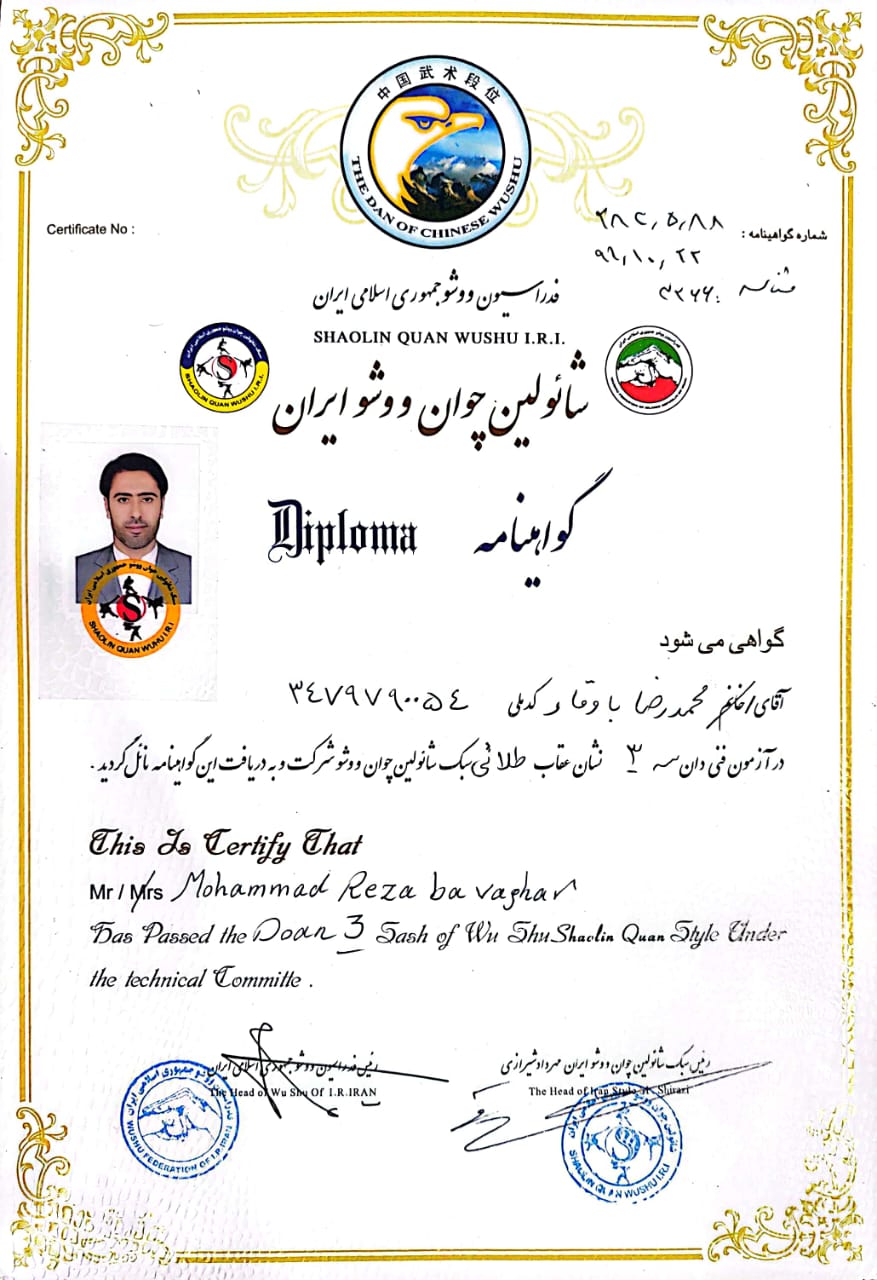 中国武术段位
THE DAN OF CHINESE WUSHU
Certificate No :
شماره گواهینامه : ۳۸۲,۵,۸۸
۹۶,۱۰,۲۲
شناسه : ۳۲۶۶
فدراسیون ووشو جمهوری اسلامی ایران
SHAOLIN QUAN WUSHU I.R.I.
SHAOLIN QUAN WUSHU I.R.I.
شائولین چوان ووشو ایران
Diploma گواهینامه
SHAOLIN QUAN WUSHU I.R.I
گواهی می شود
آقای/خانم محمدرضا باوقار کدملی ۳۴۷۹۷۹۰۰۵۴
در آزمون فنی دان سه ۳ نشان عقاب طلائی سبک شائولین چوان ووشو شرکت و به دریافت این گواهینامه نائل گردید .
This Is Certify That
Mr / Mrs Mohammad Reza bavaghar
Has Passed the Doan 3 Sash of Wu Shu Shaolin Quan Style Under
the technical Committe .
رئیس فدراسیون ووشو جمهوری اسلامی ایران
The Head of Wu Shu Of I.R.IRAN
رئیس سبک شائولین چوان ووشو ایران مهرداد شیرازی
The Head of Iran Style Shirazi
WUSHU FEDERATION OF I.R.IRAN
SHAOLIN QUAN WUSHU I.R.I